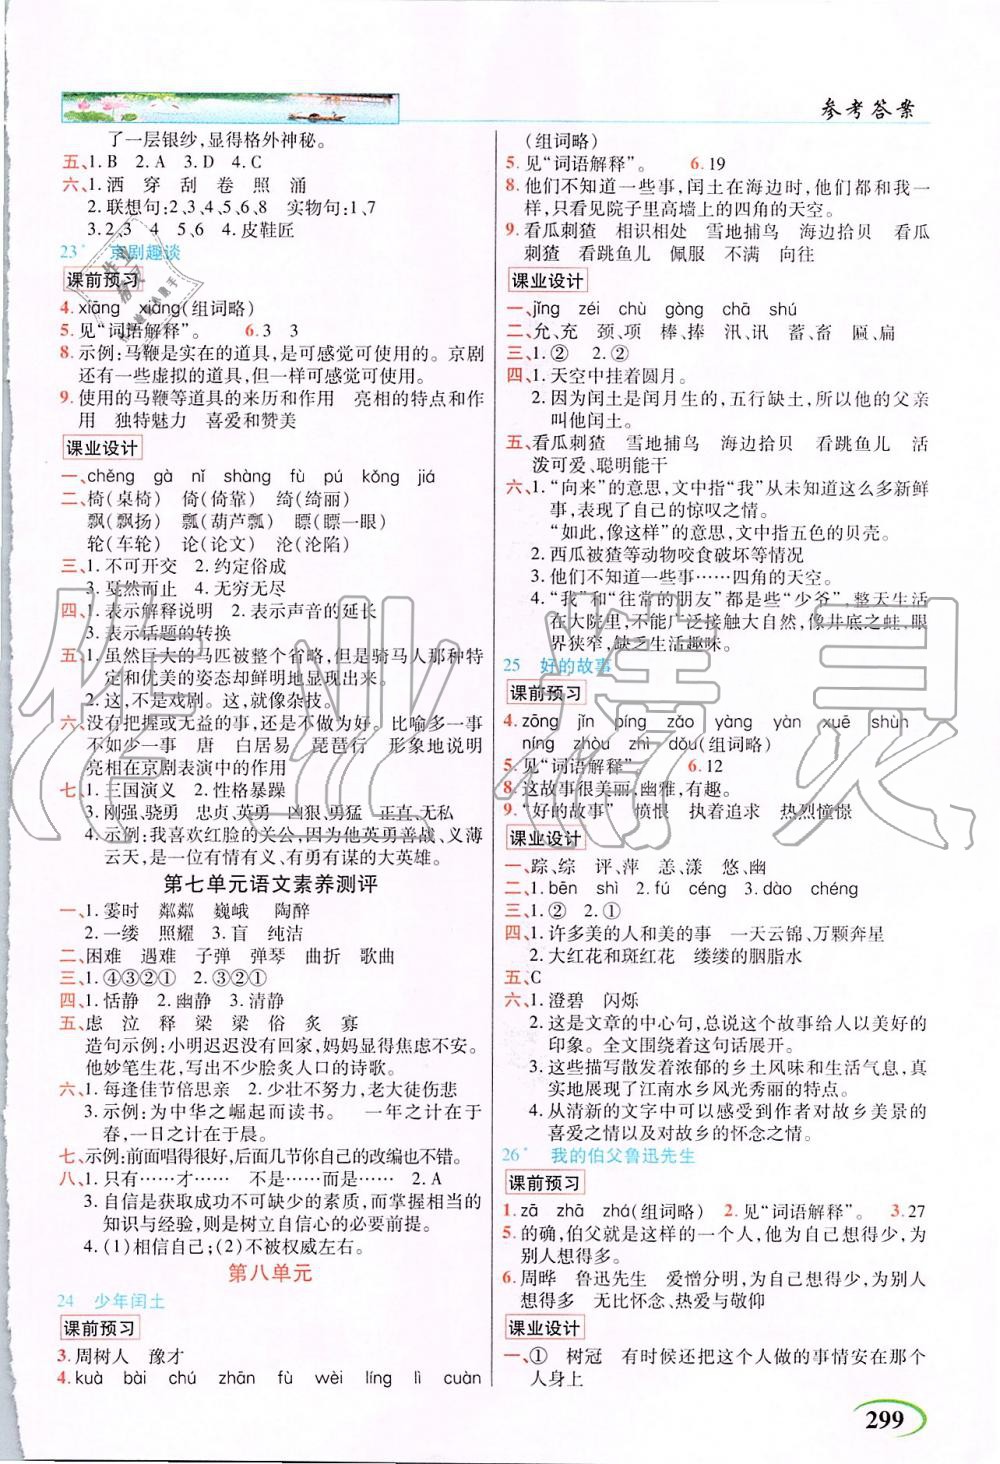 参考答案
了一层银纱,显得格外神秘。
五、1. B 2. A 3. D 4. C
六、1. 洒 穿 刮 卷 照 涌
2. 联想句:2、3、4、5、6、8 实物句:1、7
3. 2、3 4 5、6 4. 皮鞋匠
23* 京剧趣谈
课前预习
4. xiāng xiàng(组词略)
5. 见“词语解释”。 6. 3 3
8. 示例:马鞭是实在的道具,是可感觉可使用的。京剧
还有一些虚拟的道具,但一样可感觉可使用。
9. 使用的马鞭等道具的来历和作用 亮相的特点和作
用 独特魅力 喜爱和赞美
课业设计
一、chěng gà nǐ shāng fù pú kǒng jiá
二、椅(桌椅) 倚(倚靠) 绮(绮丽)
飘(飘扬) 瓢(葫芦瓢) 瞟(瞟一眼)
轮(车轮) 论(论文) 沦(沦陷)
三、1. 不可开交 2. 约定俗成
3. 戛然而止 4. 无穷无尽
四、1. 表示解释说明 2. 表示声音的延长
3. 表示话题的转换
五、1. 虽然巨大的马匹被整个省略,但骑马人那种特
定和优美的姿态却鲜明地显现出来。
2. 这,不是戏剧。这,就像杂技。
六、没有把握或无益的事,还是不做为好 比喻多一事
不如少一事 唐 白居易 琵琶行 形象地说明
亮相在京剧表演中的作用
七、1. 三国演义 2. 性格暴躁
3. 刚强、骁勇 忠贞、英勇 凶狠、勇猛 正直、无私
4. 示例:我喜欢红脸的关公,因为他英勇善战、义薄
云天,是一位有情有义、有勇有谋的大英雄。
第七单元语文素养测评
一、1. 霎时 粼粼 巍峨 陶醉
2. 一缕 照耀 3. 盲 纯洁
二、困难 遇难 子弹 弹琴 曲折 歌曲
三、1. ④③②① 2. ④③②①
四、1. 恬静 2. 幽静 3. 清静
五、虑 泣 释 梁 梁 俗 炙 寡
造句示例:小明迟迟没有回家,妈妈显得焦虑不安。
他妙笔生花,写出不少脍炙人口的诗歌。
六、1. 每逢佳节倍思亲 2. 少壮不努力,老大徒伤悲
3. 示例:为中华之崛起而读书。 一年之计在于
春,一日之计在于晨。
七、示例:前面唱得很好,后面几节你自己的改编也不错。
八、1. 只有……才…… 不是……而是…… 2. A
3. 自信是获取成功不可缺少的素质,而掌握相当的
知识与经验,则是树立自信心的必要前提。
4. (1)相信自己;(2)不被权威左右。
第八单元
24 少年闰土
课前预习
3. 周树人 豫才
4. kuà bài chú zhān fù wèi líng lì cuàn
(组词略)
5. 见“词语解释”。 6. 19
8. 他们不知道一些事,闰土在海边时,他们都和我一
样,只看见院子里高墙上的四角的天空。
9. 看瓜刺猹 相识相处 雪地捕鸟 海边拾贝 看瓜
刺猹 看跳鱼儿 佩服 不满 向往
课业设计
一、jǐng zéi chù gòng chā shú
二、允、充 颈、项 棒、捧 汛、讯 蓄、畜 匾、扁
三、1. ② 2. ②
四、1. 天空中挂着圆月。
2. 因为闰土是闰月生的,五行缺土,所以他的父亲
叫他闰土。
五、看瓜刺猹 雪地捕鸟 海边拾贝 看跳鱼儿 活
泼可爱、聪明能干
六、1. “向来”的意思,文中指“我”从未知道这么多新鲜
事,表现了自己的惊叹之情。
“如此,像这样”的意思,文中指五色的贝壳。
2. 西瓜被猹等动物咬食破坏等情况
3. 他们不知道一些事……四角的天空。
4. “我”和“往常的朋友”都是些“少爷”,整天生活在
在大院里,不能广泛接触大自然,像井底之蛙,眼
界狭窄,缺乏生活趣味。
25 好的故事
课前预习
4. zōng jǐn píng zǎo yàng yàn xuē shùn
níng zhòu zhì dǒu(组词略)
5. 见“词语解释”。 6. 12
8. 这故事很美丽,幽雅,有趣。
9. “好的故事” 愤恨 执着追求 热烈憧憬
课业设计
一、踪、综 评、萍 恙、漾 悠、幽
二、1. bēn shì 2. fú céng 3. dào chéng
三、1. ② 2. ①
四、1. 许多美的人和美的事 一天云锦、万颗奔星
2. 大红花和斑红花 缕缕的胭脂水
五、C
六、1. 澄碧 闪烁
2. 这是文章的中心句,总说这个故事给人以美好的
印象。全文围绕着这句话展开。
3. 这些描写散发着浓郁的乡土风味和生活气息,真
实地展现了江南水乡风光秀丽的特点。
4. 从清新的文字中可以感受到作者对故乡美景的
喜爱之情以及对故乡的怀念之情。
26* 我的伯父鲁迅先生
课前预习
1. zā zhā zhá(组词略) 2. 见“词语解释”。 3. 27
5. 的确,伯父就是这样的一个人,他为自己想得少,为
别人想得多。
6. 周晔 鲁迅先生 爱憎分明 为自己想得少,为别人
想得多 无比怀念、热爱与敬仰
课业设计
一、① 树冠 有时候还把这个人做的事情安在那个
人身上
299
作业精灵